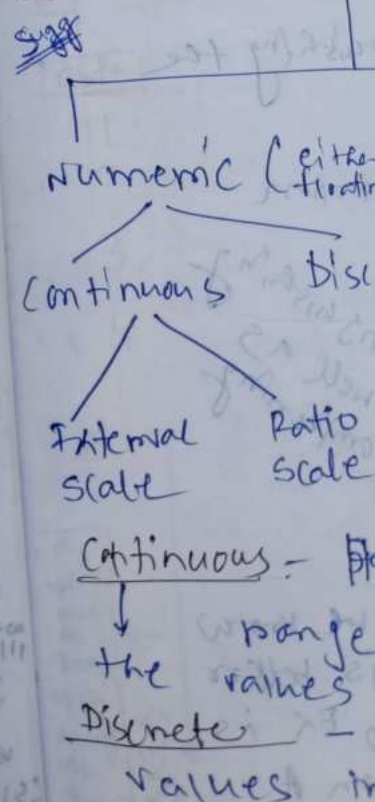 Numeric (either
floatin
Continuous Disc
Interval Ratio
scale scale
Continuous -
range
the values
Discrete -
values in